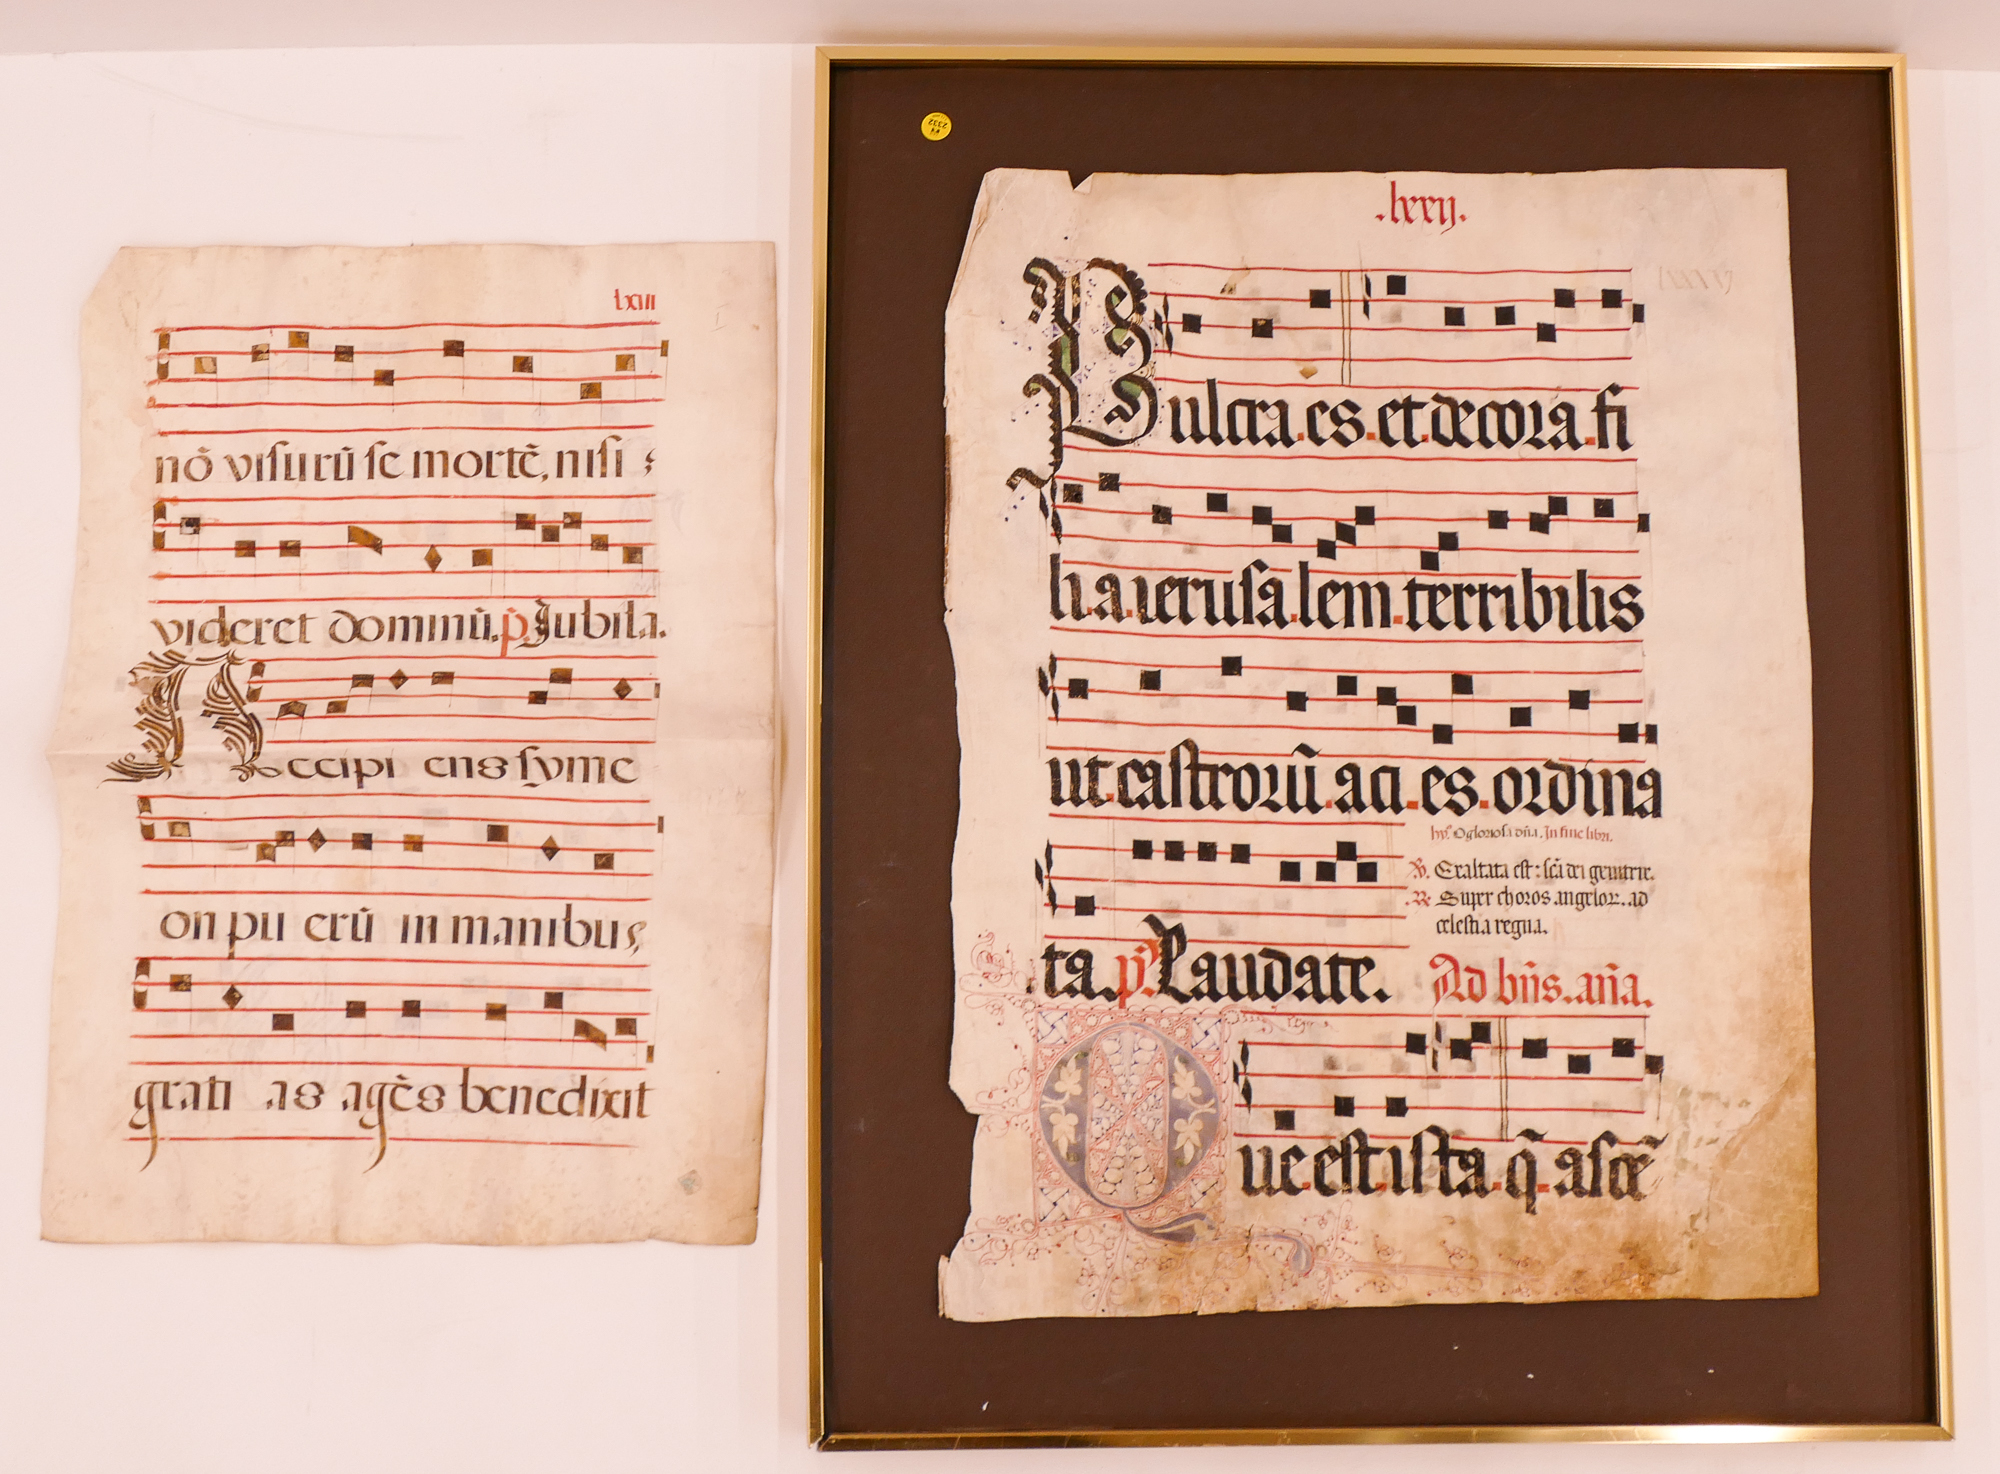 lxvii
nō visurū se mortē, nisi
videret dominū. p̄. Jubila.
Accipi ens syme
on pu erū in manibus,
grati as agēs benedixit
2332
.lxxij.
Pulcra.es.et.decora.fi
li.a.ierusa.lem.terribilis
ut.castrorū.aci.es.ordina
hy̅. O gloriosa dn̄a. In fine libri.
V. Exaltata est: scā dei genitrix.
R. Super choros angeloꝝ. ad
celestia regna.
ta. p̄s. Laudate. Ad bn̄s. an̄a.
Que.est.ista.q̄.ascē